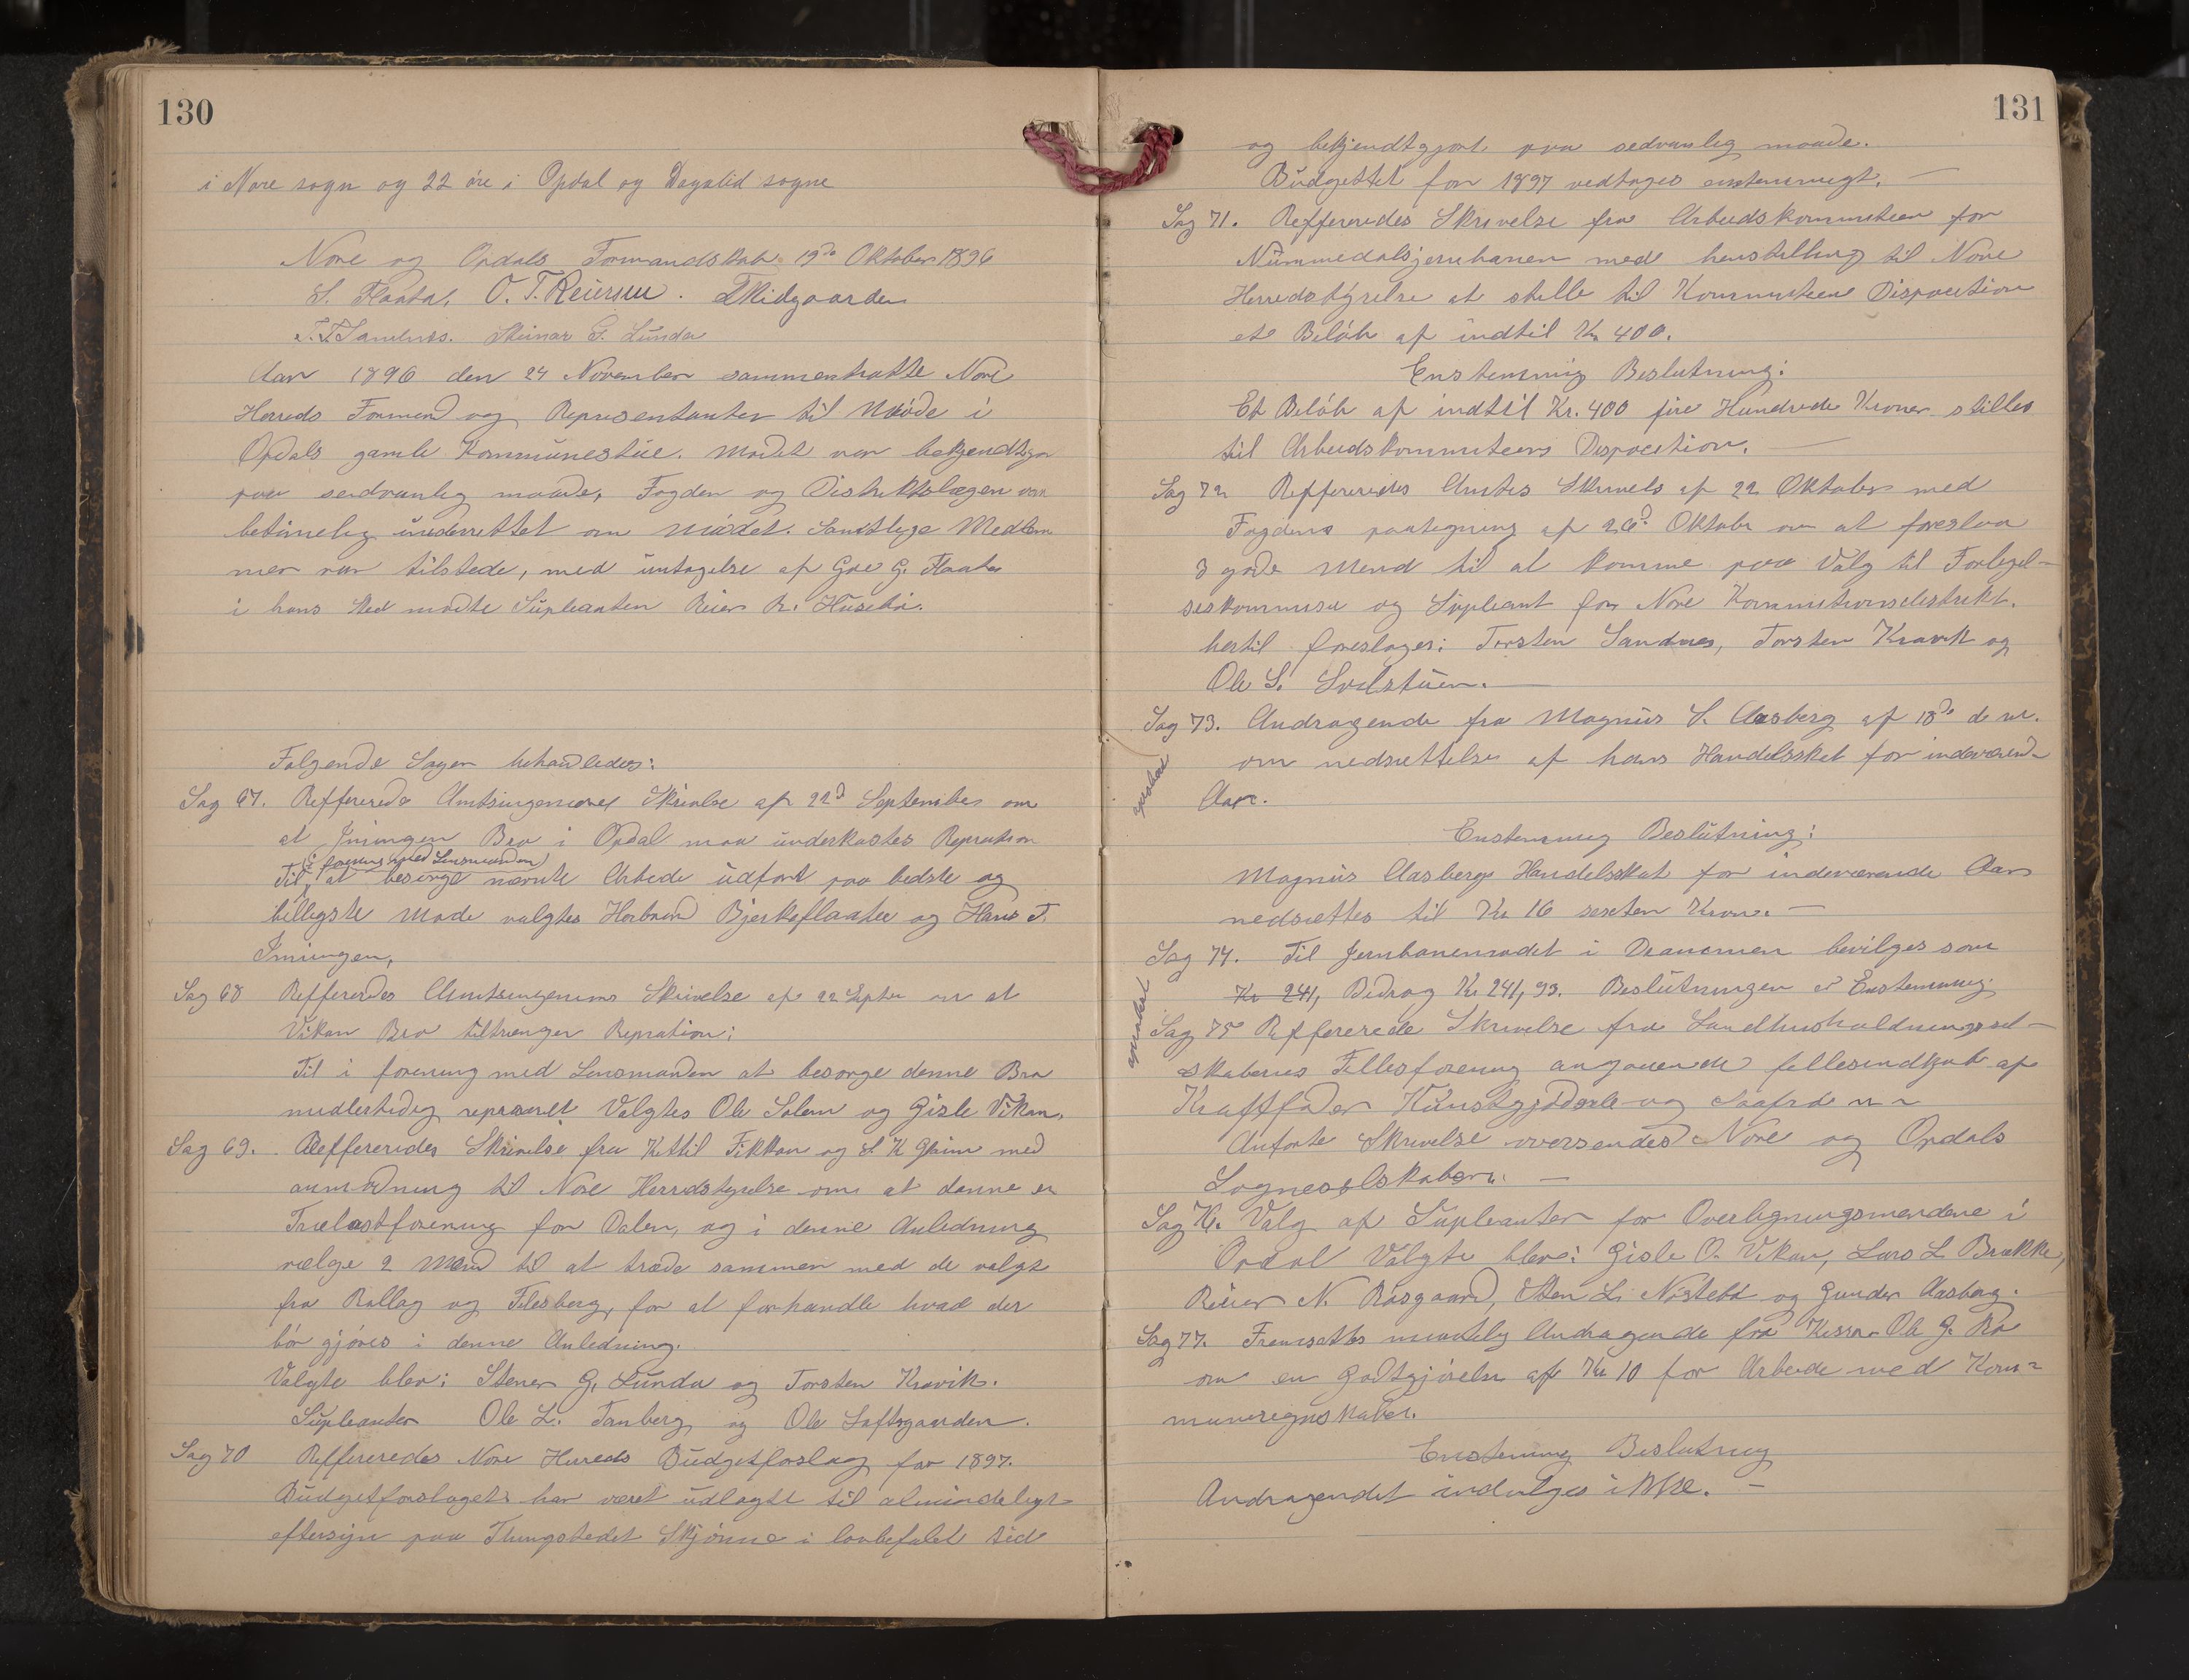 130
i Nore sogn og 22 øre i Opdal og Dagalid sogne
Nore og Opdals Formandskab 19de Oktober 1896
S. Flaata, O. T. Reiersen. T Midgaarden
T. T. Sandnes. Steinar G. Lunda
Aar 1896 den 24 November sammentratte Nore
Herreds Formend og Representanter til Møde i
Opdals gamle Kommunestue. Mødet var bekjendtgjor
paa sedvanlig maade, Fogden og Distriktslægen var
betimelig underrettet om Mødet. Samtlige Medlem
mer var tilstede, med untagelse af Goe G. Flaata
i hans sted mødte Supleanten Reier R. Husebø.
Følgende Sager behandledes:
Sag 67. Reffererede Amtsingeniørens Skrivelse af 22d September om
at Imingen Bro i Opdal maa underkastes Repration
(i forening med Lensmanden)
Til at besørge nævnte Arbede udført paa bedste og
billigste Maade valgtes Herbrand Bjerkeflaata og Hans T.
Imingen,
Sag 68 Reffereredes Amtsingeniørens Skrivelse af 22 Septer om at
Vikan Bro tiltrænger Repration:
Til i forening med Lensmanden at besørge denne Bro
midlertidig repareret Valgtes Ole Solem og Gisle Vikan.
Sag 69. Reffereredes Skrivelse fra Kittil Fikkan og S K Grim med
anmodning til Nore Herredstyrelse om at danne en
Trælastforening for Dalen, og i denne Anledning
vælge 2 Mænd til at træde sammen med de valgt
fra Rollag og Flesberg, for at forhandle hvad der
bør gjøres i denne Anledning.
Valgte blev: Stener G. Lunda og Torsten Kravik.
Supleanter Ole L. Tanberg og Ole Loftsgaarden.
Sag 70 Reffereredes Nore Herreds Budgetforslag for 1897.
Budgetforslaget har været udlagt til almindeligt
eftersyn paa Thingstedet Skjønne i lovbefalet tid
131
og bekjendtgjort paa sedvanlig maade.
Budgettet for 1897 vedtoges enstemmigt. —
Sag 71. Reffereredes Skrivelse fra Arbeidskommiteen for
Nummedalsjernbanen med henstilling til Nore
Herredstyrelse at stille til Kommiteens Disposition
et Beløb af indtil Kr 400.
Enstemmig Beslutning:
Et Beløb af indtil Kr. 400 fire Hundrede Kroner stilles
til Arbeidskommiteens Disposition. —
Sag 72 Reffereredes Amtets Skrivels af 22 Oktober med
Fogdens paategning af 26d Oktober om at foreslaa
3 gode Mend til at komme paa Valg til Forligel-
seskommisær og Supleant for Nore Kommitionsdistrikt.
hertil foreslages: Torsten Sandnes, Torsten Kravik og
Ole S. Sølstuen. —
Sag 73. Andragende fra Magnus S. Aasberg af 18de ds m.
om nedsættelse af hans Handelsskat for indeværend-
Aar.
Enstemmig Beslutning:
Magnus Aasbergs Handelsskat for indeværende Aar
nedsættes til Kr 16 sexten Kroner. —
Sag 74. Til Jernbanemødet i Drammen bevilges som
Kr 241, Bidrag Kr 241,93. Beslutningen er Enstemmig.
Sag 75 Reffererede Skrivelse fra Landhusholdningssel-
skabernes Fellesforening angaaende fellesindkjøb af
Kraftfoder Kunstgjødsele og Saafrø m m
Anførte Skrivelse oversendes Nore og Opdals
Sogneselskaber. —
Sag 76. Valg af Supleanter for Overligningsmendene i
Opdal Valgte blev: Gisle O. Vikan, Lars L Brække,
Reier N. Raagaard, Sten L. Nørstebø og Gunder Aasberg.
Sag 77. Fremsattes muntlig Andragende fra Kasser Ole G. Ro
om en Godtgjørelse af Kr 10 for Arbeide med Kom-
muneregnskabet.
Enstemmig Beslutning
Andragendet indvilges ikke. —